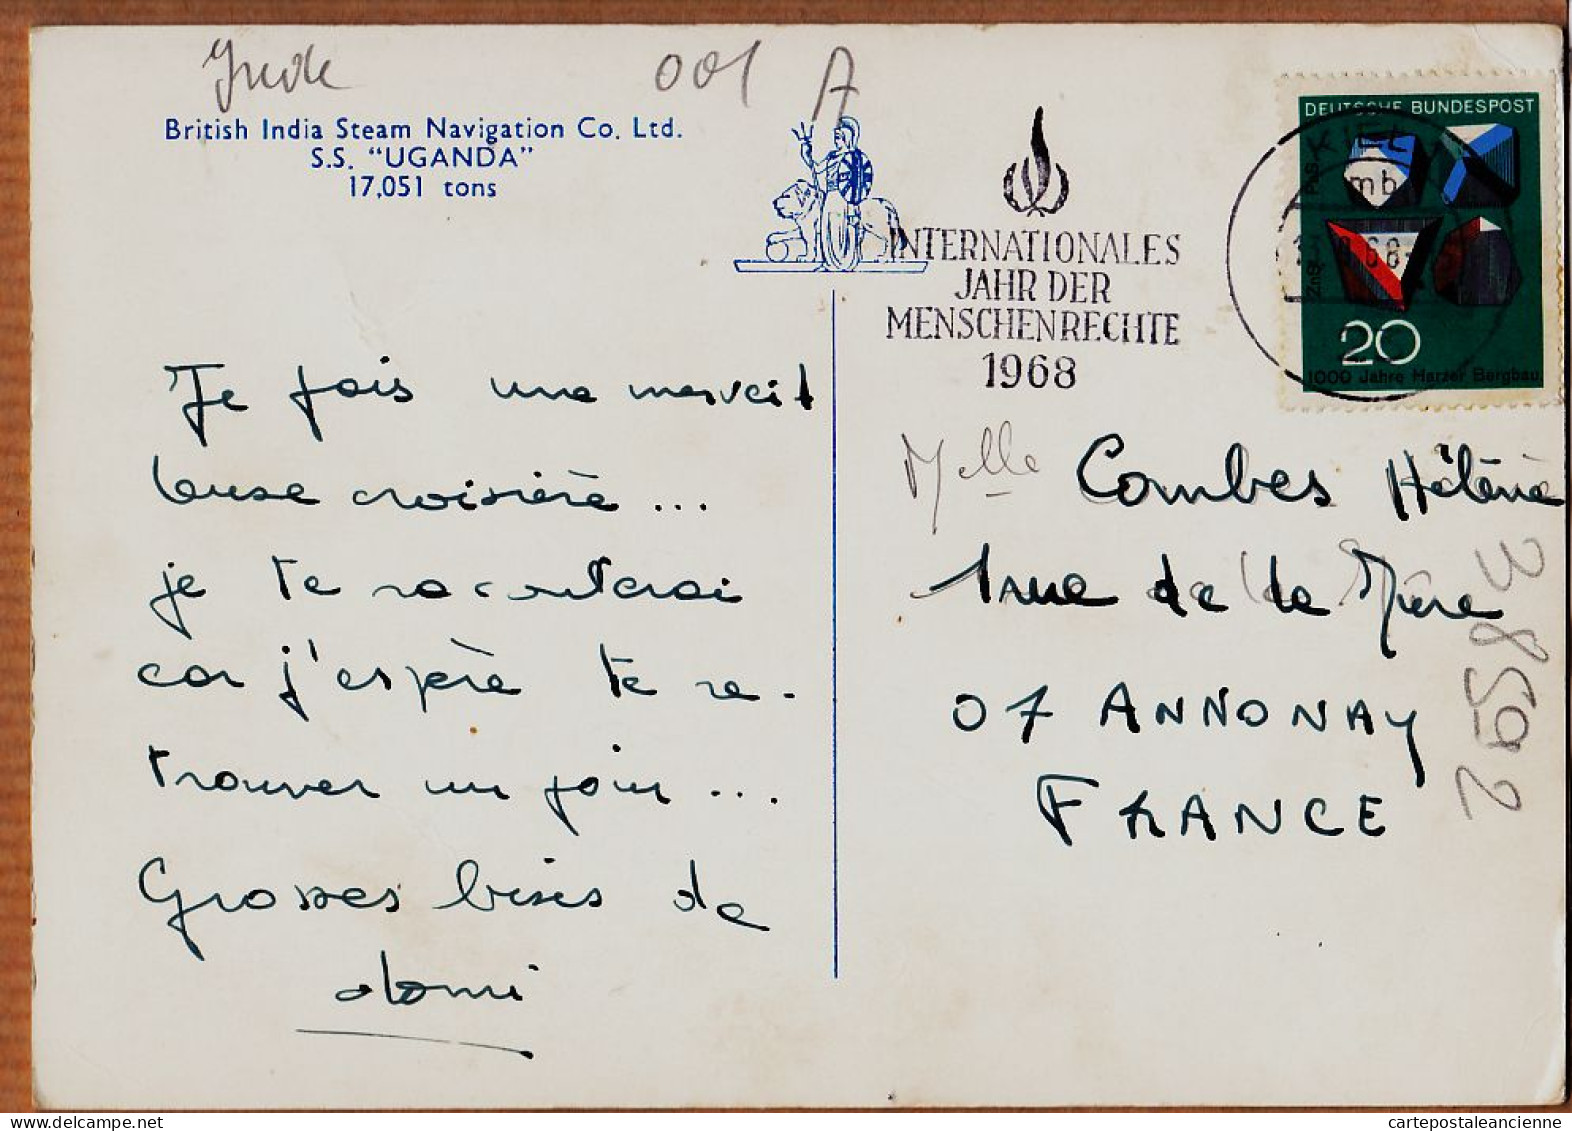 Inde 001 A
British India Steam Navigation Co. Ltd.
S.S. "UGANDA"
17,051 tons
INTERNATIONALES
JAHR DER
MENSCHENRECHTE
1968
DEUTSCHE BUNDESPOST
KIEL
mb
PbS
ZnS
20
1000 Jahre Harzer Bergbau
Je fais une merveil
leuse croisière ...
je te raconterai
car j'espère te re-
trouver un jour ...
Grosses bises de
domi
Melle Combes Hélène
1 rue de la Mûre
07 ANNONAY
FRANCE
38592
cartepostaleancienne